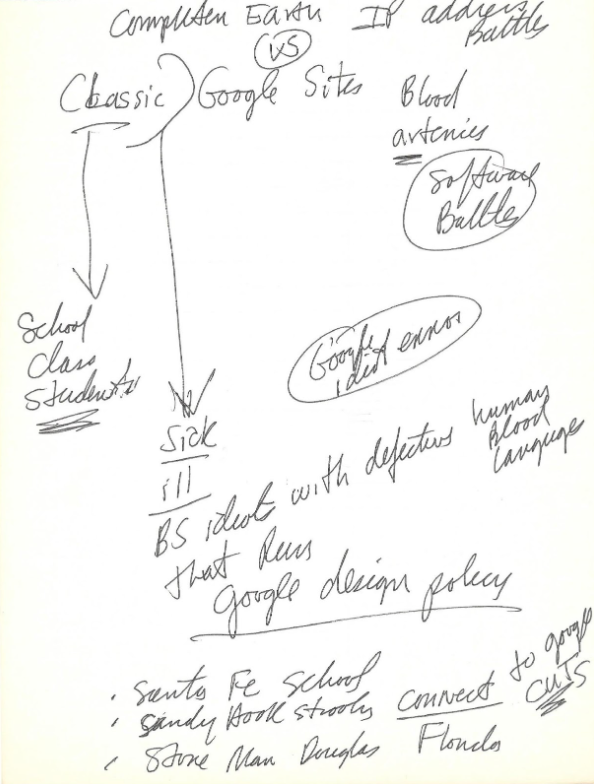 Computer Earth IP address
Battles
VS
Classic) Google Sites
Blood
arteries
Software
Battles
School
class
students
Google
idiot error
Sick
ill
BS idiots with defective human
Blood
language
that Runs
Google design policy
Santa Fe School
Sandy Hook
connect
to google
CUTS
Stone Man Douglas Florida